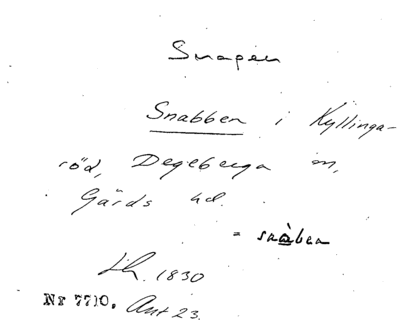 Snapen
Snabben i Kyllinga-
röd, Degeberga sn,
Gärds hd.
= snàben
Lh. 1830
Nr 7710. Ant 23.